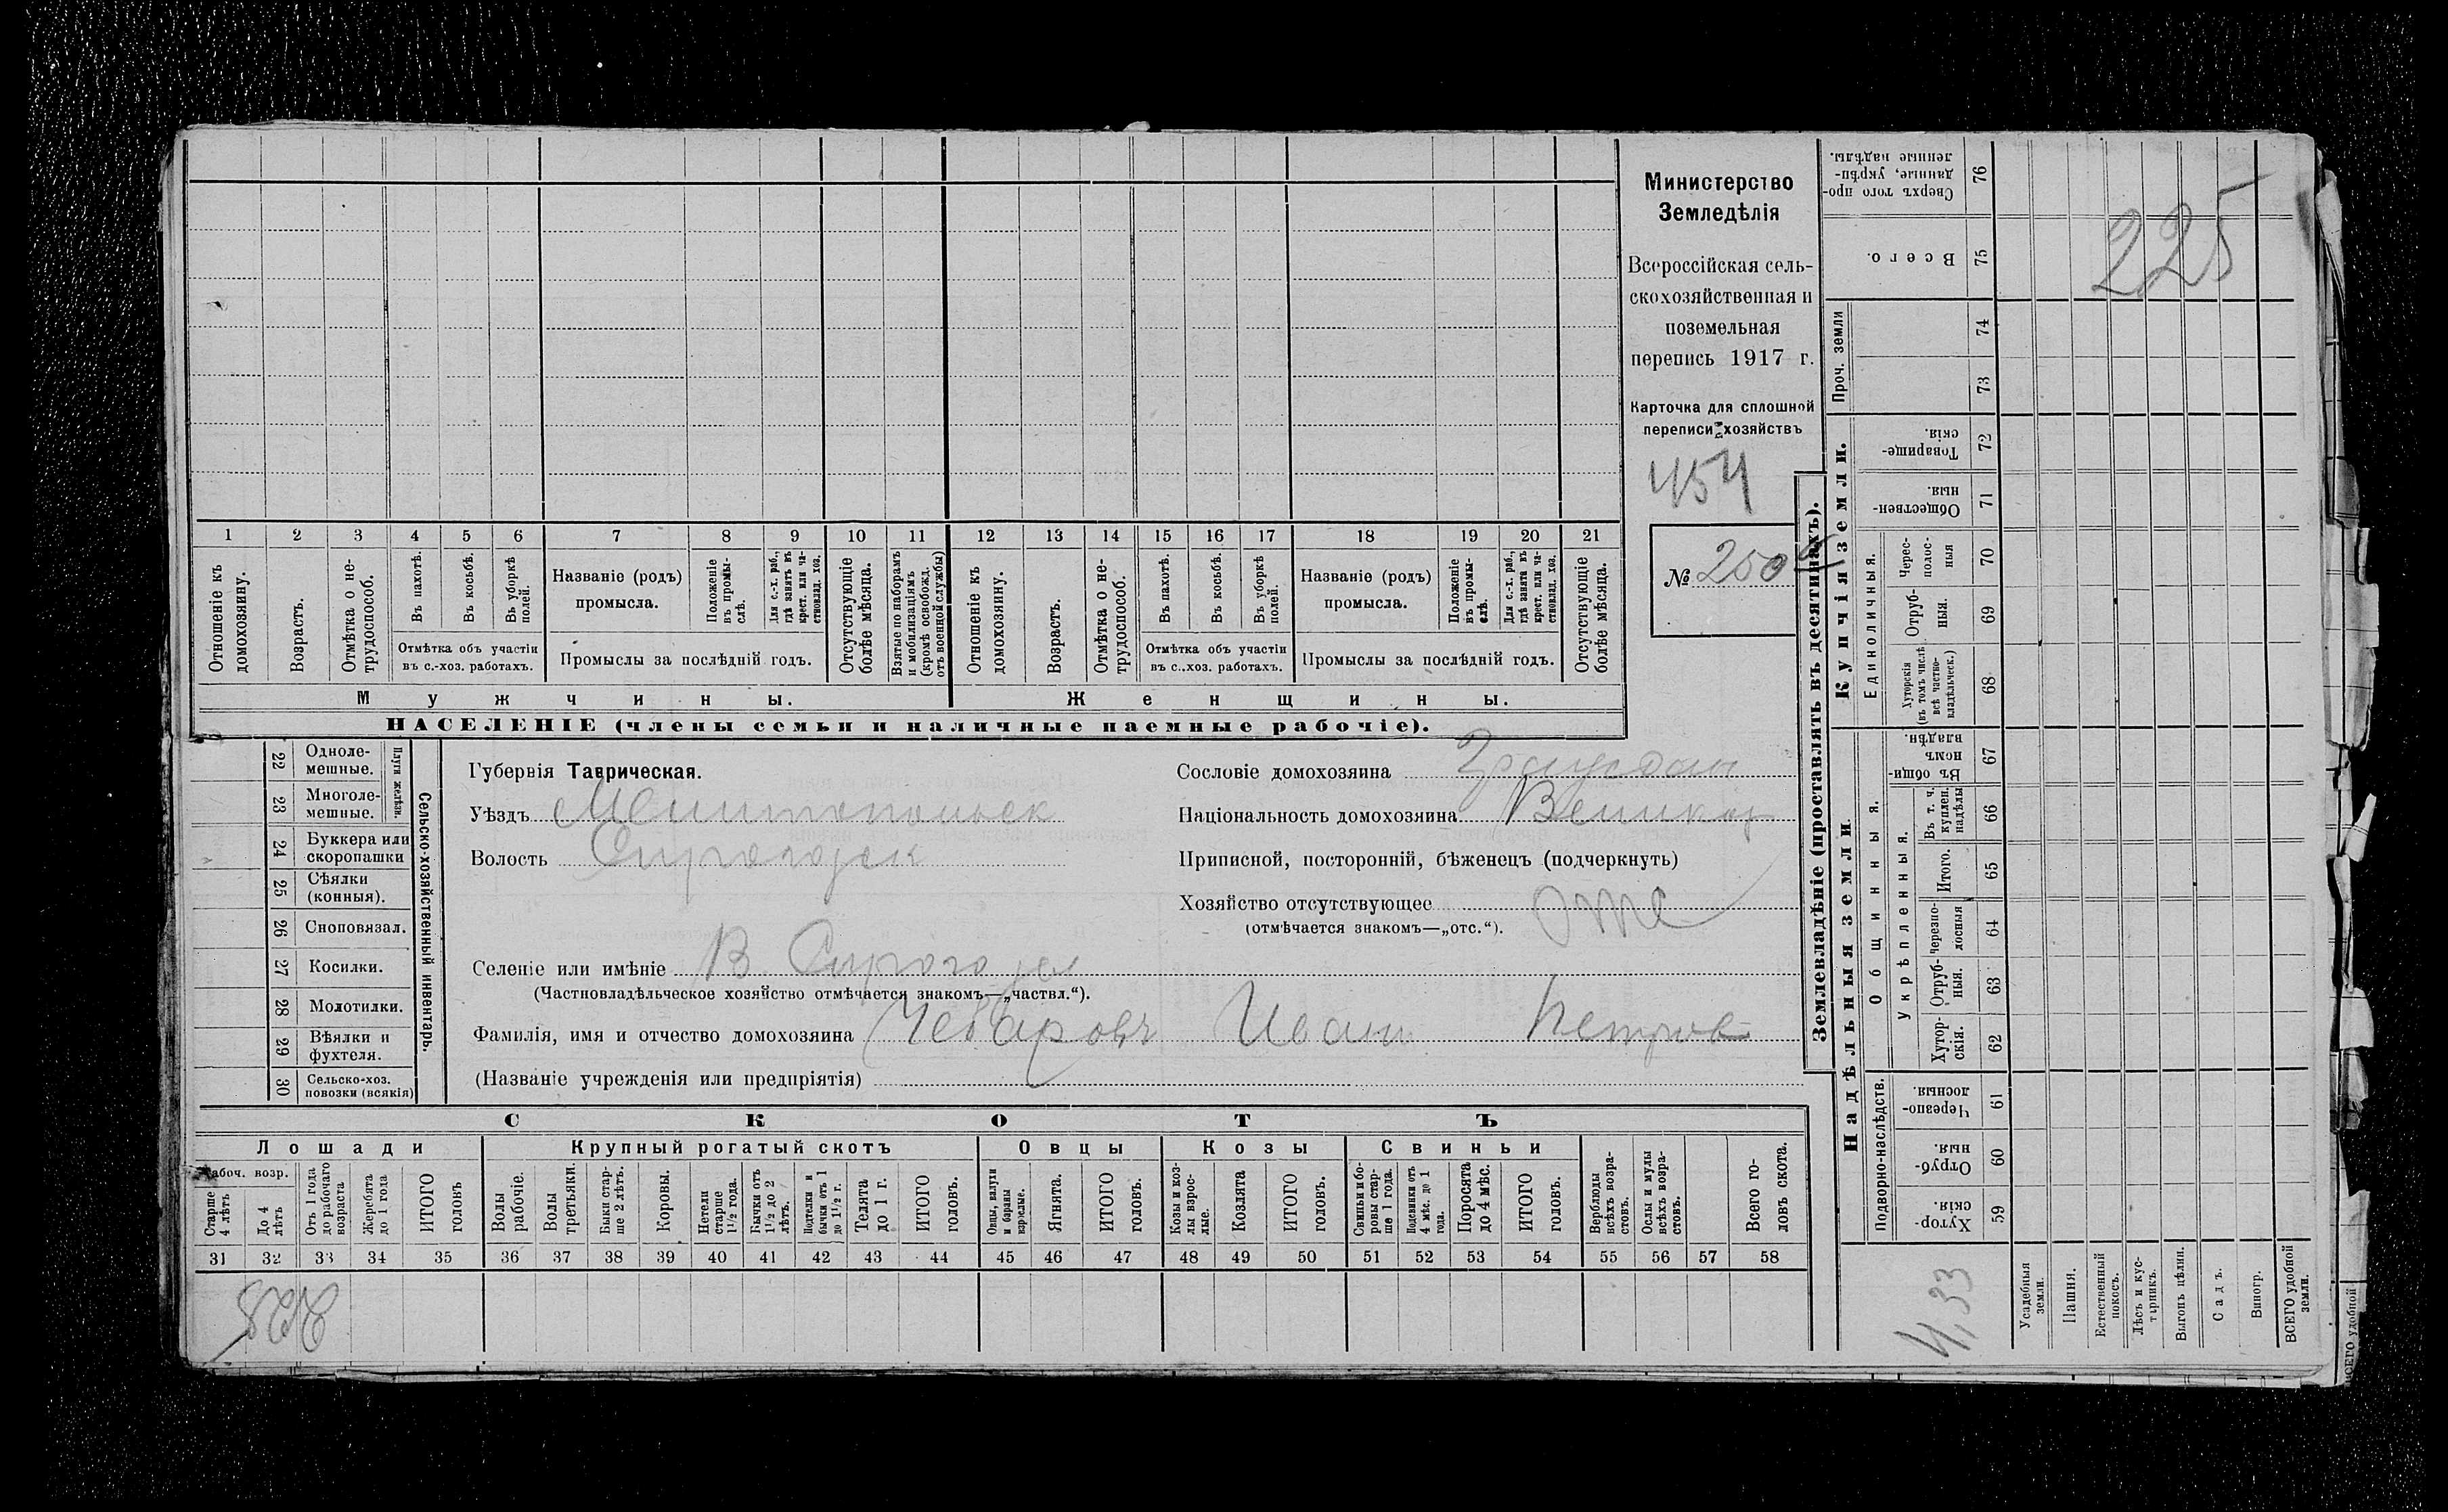 1 2 3 4 5 6 7 8 9 10 11 12 13 14 15 16 17 18 19 20 21
Отношеніе къ домохозяину.
Возрастъ.
Отмѣтка о не-
трудоспособ.
Въ пахотѣ.
Въ косьбѣ.
Въ уборкѣ
полей.
Отмѣтка объ участіи
въ с.-хоз. работахъ.
Названіе (родъ)
промысла.
Положеніе
въ промы-
слѣ.
Для с.-х. раб.,
гдѣ занятъ въ
крест. или ча-
стновлад. хоз.
Промыслы за послѣдній годъ.
Отсутствующіе
болѣе мѣсяца.
Взятые по наборамъ
и мобилизаціямъ
(кромѣ освобожд.
отъ военной службы)
Отношеніе къ
домохозяину.
Возрастъ.
Отмѣтка о не-
трудоспособ.
Въ пахотѣ.
Въ косьбѣ.
Въ уборкѣ
полей.
Отмѣтка объ участіи
въ с..хоз. работахъ.
Названіе (родъ)
промысла.
Положеніе
въ промы-
слѣ.
Для с.-х. раб.,
гдѣ занята въ
крест. или ча-
стновлад. хоз.
Промыслы за послѣдній годъ.
Отсутствующіе
болѣе мѣсяца.
Мужчины.
Женщины.
НАСЕЛЕНІЕ (члены семьи и наличные наемные рабочіе).
Министерство
Земледѣлія
Всероссійская сель-
скохозяйственная и
поземельная
перепись 1917 г.
Карточка для сплошной
переписи хозяйствъ
454
№ 250
22 Одноле-
мешные.
23 Многоле-
мешные.
Плуги желѣзн.
24 Буккера или
скоропашки
25 Сѣялки
(конныя).
26 Сноповязал.
27 Косилки.
28 Молотилки.
29 Вѣялки и
фухтеля.
30 Сельско-хоз.
повозки (всякія)
Сельско-хозяйственный инвентарь.
Губернія Таврическая.
Уѣздъ Мелитопольск
Волость Сирогозск
Селеніе или имѣніе В. Сирогозы
(Частновладѣльческое хозяйство отмѣчается знакомъ—„частвл.“).
Фамилія, имя и отчество домохозяина Чебаровъ Иван Петров
(Названіе учрежденія или предпріятія)
Сословіе домохозяина Граждан
Національность домохозяина Великор
Приписной, посторонній, бѣженецъ (подчеркнуть)
Хозяйство отсутствующее отс
(отмѣчается знакомъ—„отс.“).
СКОТЪ
Лошади
Крупный рогатый скотъ
Овцы
Козы
Свиньи
Рабоч. возр.
Старше
4 лѣтъ
До 4
лѣтъ
Отъ 1 года
до рабочаго
возраста
Жеребята
до 1 года
ИТОГО
головъ
Волы
рабочіе.
Волы
третьяки.
Быки стар-
ше 2 лѣтъ.
Коровы.
Нетели
старше
1½ года.
Бычки отъ
1½ до 2
лѣтъ.
Подтелки и
бычки отъ 1
до 1½ г.
Телята
до 1 г.
ИТОГО
головъ.
Овцы, валухи
и бараны
взрослые.
Ягнята.
ИТОГО
головъ.
Козы и коз-
лы взрос-
лые.
Козлята
ИТОГО
головъ.
Свиньи и бо-
ровы стар-
ше 1 года.
Подсвинки отъ
4 мѣс. до 1
года.
Поросята
до 4 мѣс.
ИТОГО
головъ.
Верблюды
всѣхъ возра-
стовъ.
Ослы и мулы
всѣхъ возра-
стовъ.
Всего го-
ловъ скота.
31 32 33 34 35 36 37 38 39 40 41 42 43 44 45 46 47 48 49 50 51 52 53 54 55 56 57 58
Землевладѣніе (проставлять въ десятинахъ).
Надѣльныя земли.
Купчія земли.
Проч. земли
Подворно-наслѣдств.
Общинныя.
Укрѣпленныя.
Единоличныя.
Сверхъ того про-
данные, укрѣп-
ленные надѣлы.
76
Всего.
75
74
73
Товарище-
скія.
72
Обществен-
ныя.
71
Черес-
полос-
ныя
70
Отруб-
ныя.
69
Хуторскія
(въ томъ числѣ
всѣ частно-
владѣльческ.)
68
Въ общин-
номъ
владѣн.
67
Въ т. ч.
куплен.
надѣлы
66
Итого.
65
Черезпо-
лосныя
64
Отруб-
ныя.
63
Хутор-
скія.
62
Черезпо-
лосныя
61
Отруб-
ныя.
60
Хутор-
скія.
59
225
4,33
Усадебныя
земли.
Пашня.
Естественный
покосъ.
Лѣсъ и кус-
тарникъ.
Выгонъ цѣлин.
Садъ.
Виногр.
ВСЕГО удобной
земли.
ВСЕГО удобной